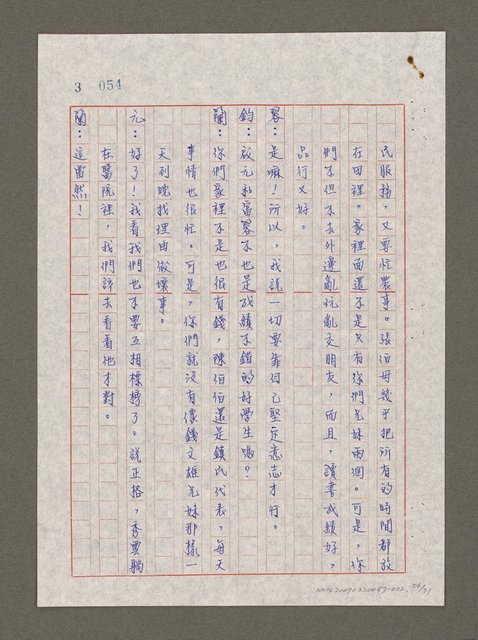 3 054
民服務，又要忙農事。張伯母幾乎把所有的時間都放
在田裡，家裡面還不是只有你們兄妹兩個。可是，你
們不但不去外邊亂玩亂交朋友，而且，讀書成績好，
品行又好。
容：是嘛！所以，我說一切要靠自己堅定意志才行。
鈞：啟元和富容不也是成績不錯的好學生嗎？
蘭：你們家裡不是也很有錢，陳伯伯還是鎮民代表，每天
事情也很忙。可是，你們就沒有像錢文雄兄妹那樣一
天到晚找理由做壞事。
元：好了！我看我們也不要互相標榜了。說正格，秀雲躺
在醫院裡，我們該去看看他才對。
蘭：這當然！